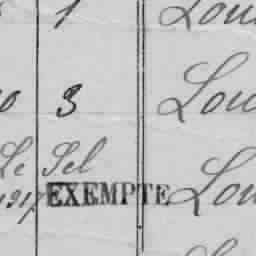 1 Lou
3 Lou
Le Sel
1917 EXEMPTE Lou